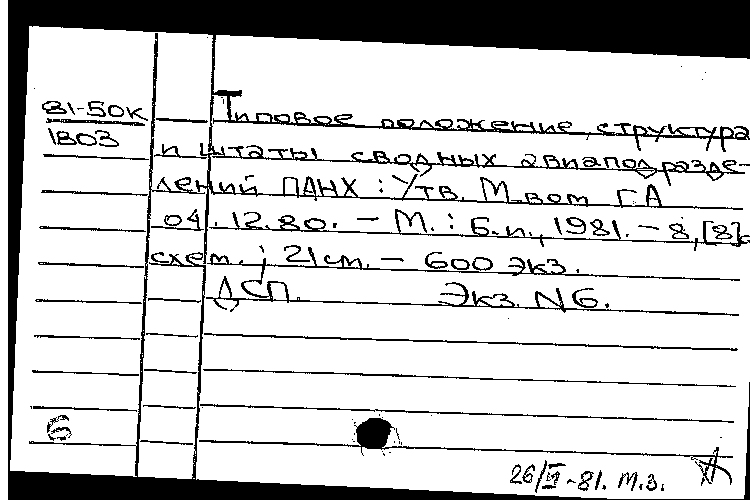 81-50К
1803
Типовое положение, структура
и штаты сводных авиаподразде-
лений ПАНХ : Утв. М-вом ГА
04.12.80. - М. : Б.и., 1981. - 8, [8] с
схем. ; 21 см. - 600 экз.
ДСП. Экз. N 6.
Б
26/VI-81. М.З.